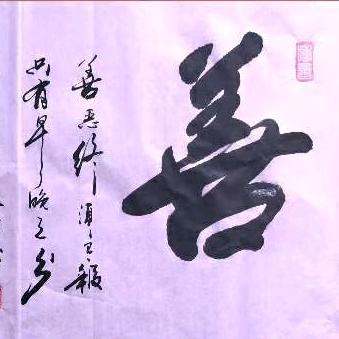 善
善恶终须有报
只有早晚之分